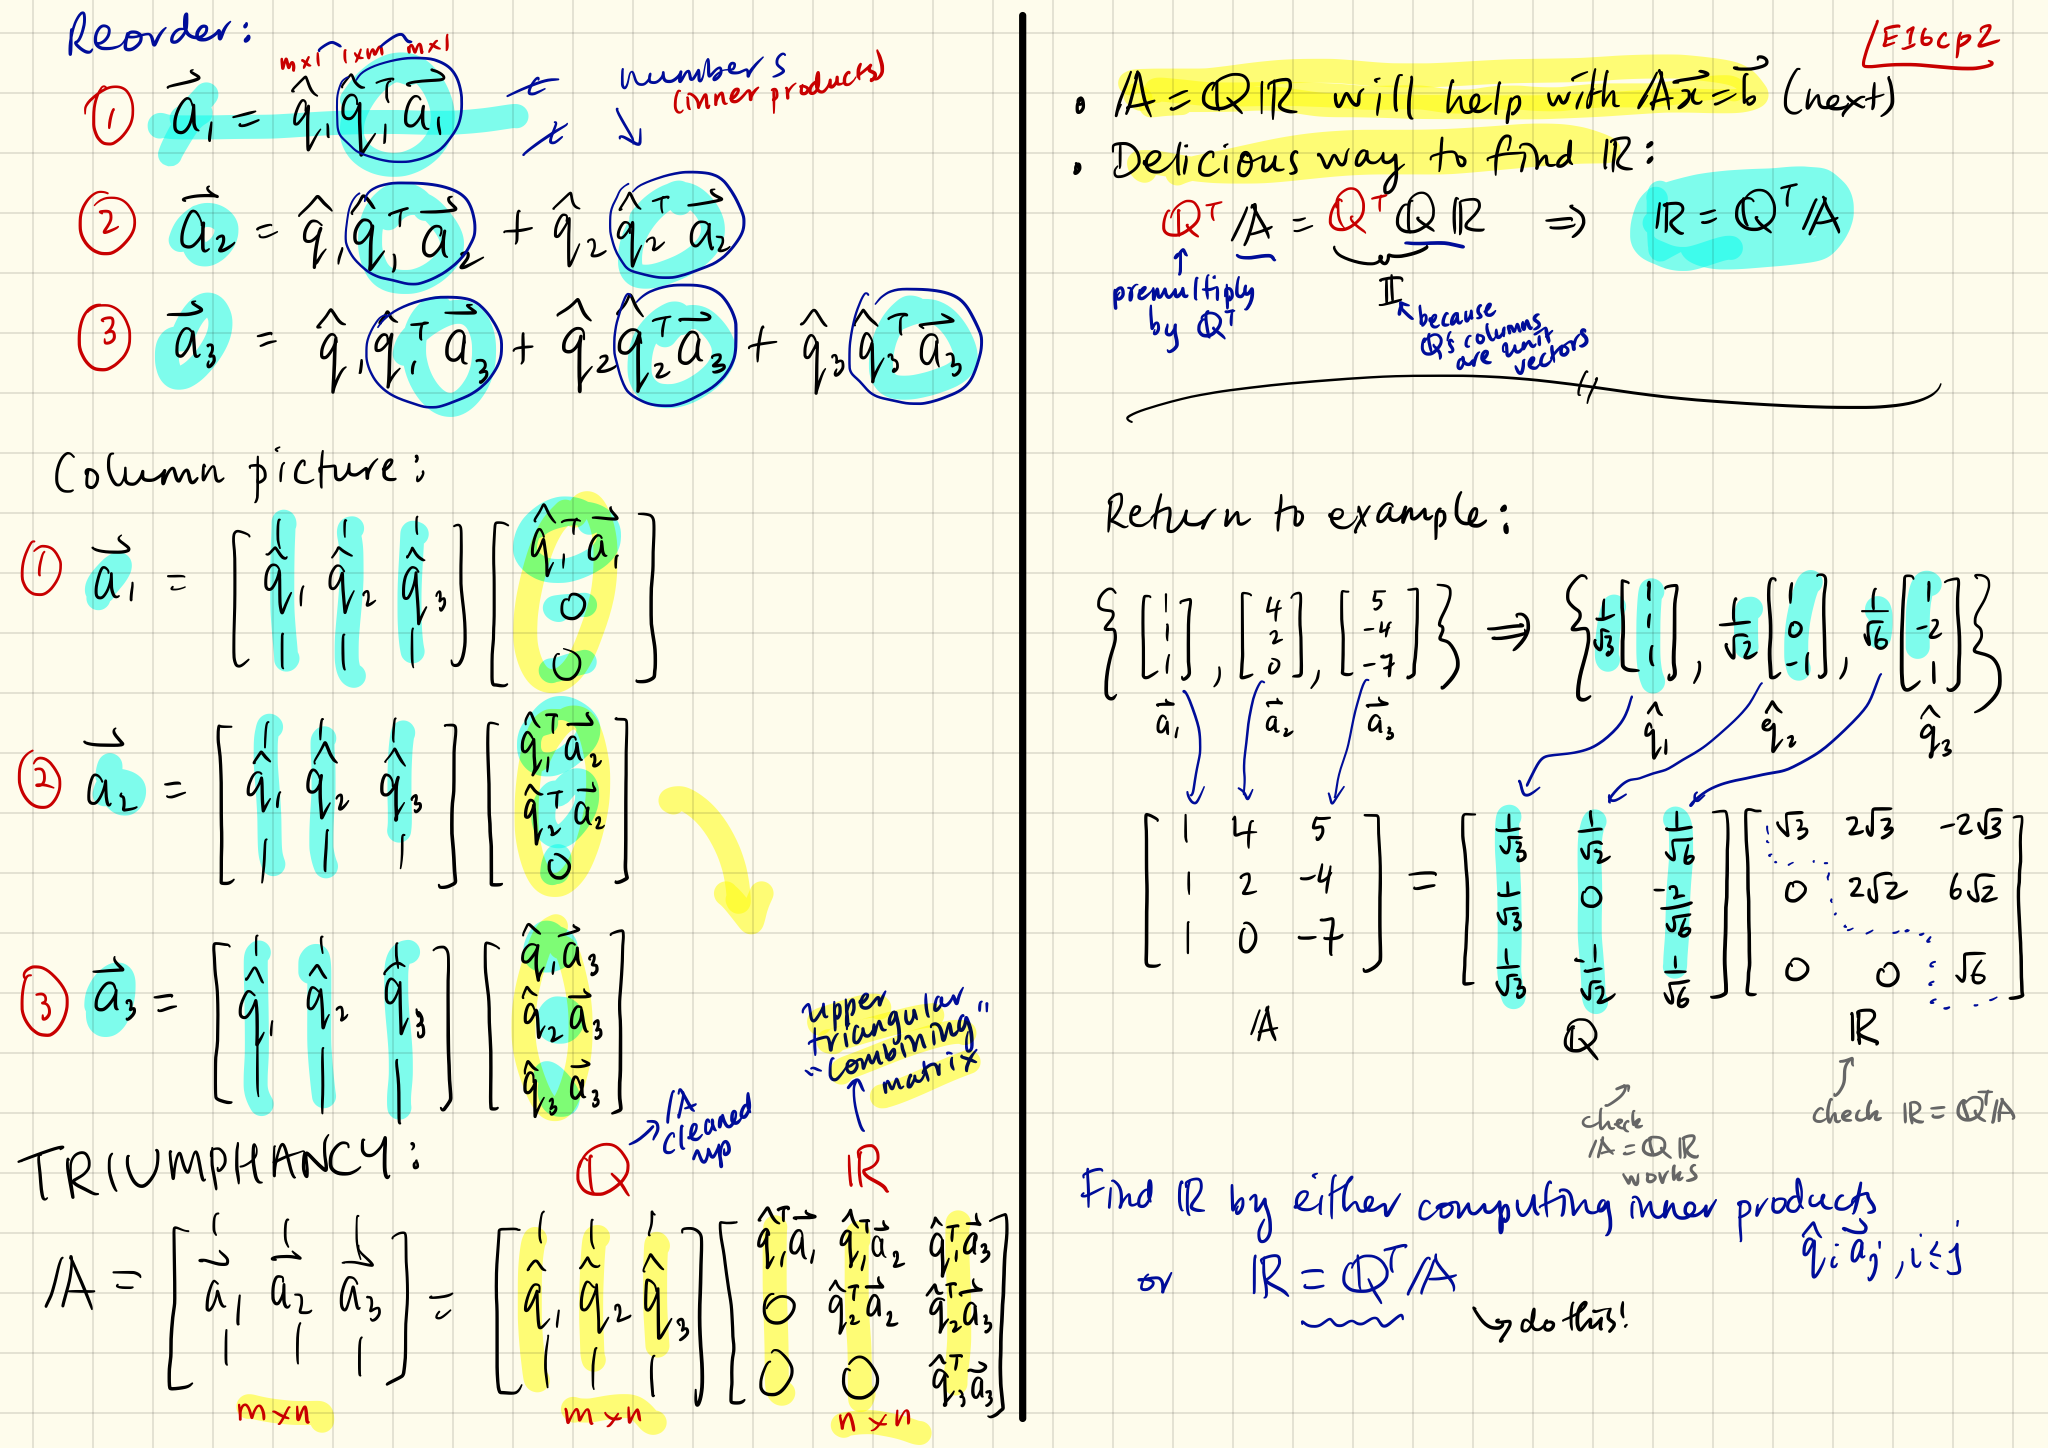 Reorder:
m×1 1×m m×1
① a⃗₁ = q̂₁ q̂₁ᵀ a⃗₁
numbers
(inner products)
② a⃗₂ = q̂₁ q̂₁ᵀ a⃗₂ + q̂₂ q̂₂ᵀ a⃗₂
③ a⃗₃ = q̂₁ q̂₁ᵀ a⃗₃ + q̂₂ q̂₂ᵀ a⃗₃ + q̂₃ q̂₃ᵀ a⃗₃
Column picture:
① a⃗₁ = [ q̂₁ q̂₂ q̂₃ ] [ q̂₁ᵀ a⃗₁
0
0 ]
② a⃗₂ = [ q̂₁ q̂₂ q̂₃ ] [ q̂₁ᵀ a⃗₂
q̂₂ᵀ a⃗₂
0 ]
③ a⃗₃ = [ q̂₁ q̂₂ q̂₃ ] [ q̂₁ a⃗₃
q̂₂ a⃗₃
q̂₃ a⃗₃ ]
upper
triangular
"combining"
matrix
𝔸
cleaned
up
TRIUMPHANCY:
ℚ ℝ
𝔸 = [ a⃗₁ a⃗₂ a⃗₃ ] = [ q̂₁ q̂₂ q̂₃ ] [ q̂₁ᵀa⃗₁ q̂₁ᵀa⃗₂ q̂₁ᵀa⃗₃
0 q̂₂ᵀa⃗₂ q̂₂ᵀa⃗₃
0 0 q̂₃ᵀa⃗₃ ]
m×n m×n n×n
E16cp2
• 𝔸 = ℚℝ will help with 𝔸x⃗ = b⃗ (next)
• Delicious way to find ℝ:
ℚᵀ 𝔸 = ℚᵀ ℚ ℝ ⇒ ℝ = ℚᵀ𝔸
premultiply
by ℚᵀ
𝕀
because
ℚ's columns
are unit
vectors
Return to example:
{ [ 1 1 1 ], [ 4 2 0 ], [ 5 -4 -7 ] } ⇒ { 1/√3 [ 1 1 1 ], 1/√2 [ 1 0 -1 ], 1/√6 [ 1 -2 1 ] }
a⃗₁ a⃗₂ a⃗₃ q̂₁ q̂₂ q̂₃
[ 1 4 5 ] [ 1/√3 1/√2 1/√6 ] [ √3 2√3 -2√3 ]
[ 1 2 -4 ] = [ 1/√3 0 -2/√6 ] [ 0 2√2 6√2 ]
[ 1 0 -7 ] [ 1/√3 -1/√2 1/√6 ] [ 0 0 √6 ]
𝔸 ℚ ℝ
check
𝔸 = ℚℝ
works
check ℝ = ℚᵀ𝔸
Find ℝ by either computing inner products
q̂ᵢ a⃗ⱼ, i ≤ j
or ℝ = ℚᵀ𝔸
↳ do this!